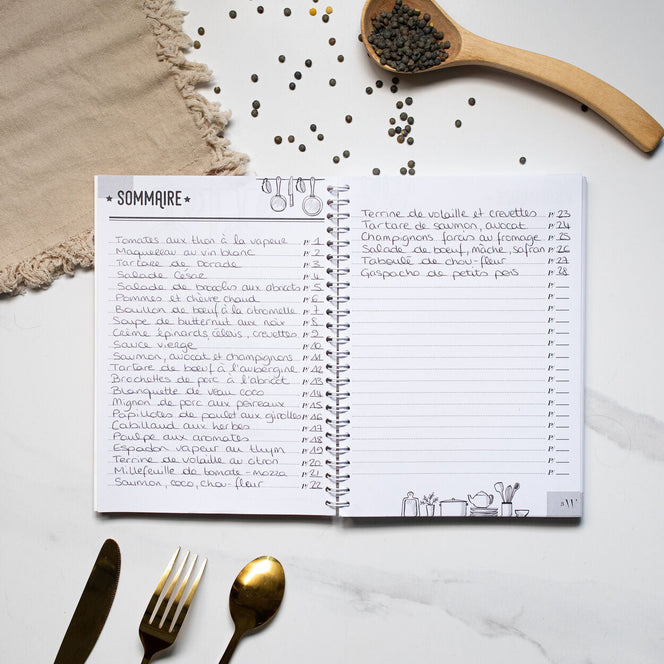 SOMMAIRE
Tomates aux thon à la vapeur p. 1
Maquereau au vin blanc p. 2
Tartare de dorade p. 3
Salade César p. 4
Salade de brocolis aux abricots p. 5
Pommes et chèvre chaud p. 6
Bouillon de bœuf à la citronnelle p. 7
Soupe de butternut aux noix p. 8
Crème épinards, céleri, crevettes p. 9
Sauce vierge p. 10
Saumon, avocat et champignons p. 11
Tartare de bœuf à l'aubergine p. 12
Brochettes de porc à l'abricot p. 13
Blanquette de veau coco p. 14
Mignon de porc aux poireaux p. 15
Papillotes de poulet aux girolles p. 16
Cabillaud aux herbes p. 17
Poulpe aux aromates p. 18
Espadon vapeur au thym p. 19
Terrine de volaille au citron p. 20
Millefeuille de tomate-mozza p. 21
Saumon, coco, chou-fleur p. 22
Terrine de volaille et crevettes p. 23
Tartare de saumon, avocat p. 24
Champignons farcis au fromage p. 25
Salade de bœuf, mâche, safran p. 26
Taboulé de chou-fleur p. 27
Gaspacho de petits pois p. 28
p.
p.
p.
p.
p.
p.
p.
p.
p.
p.
p.
p.
p.
p.
p.
p.